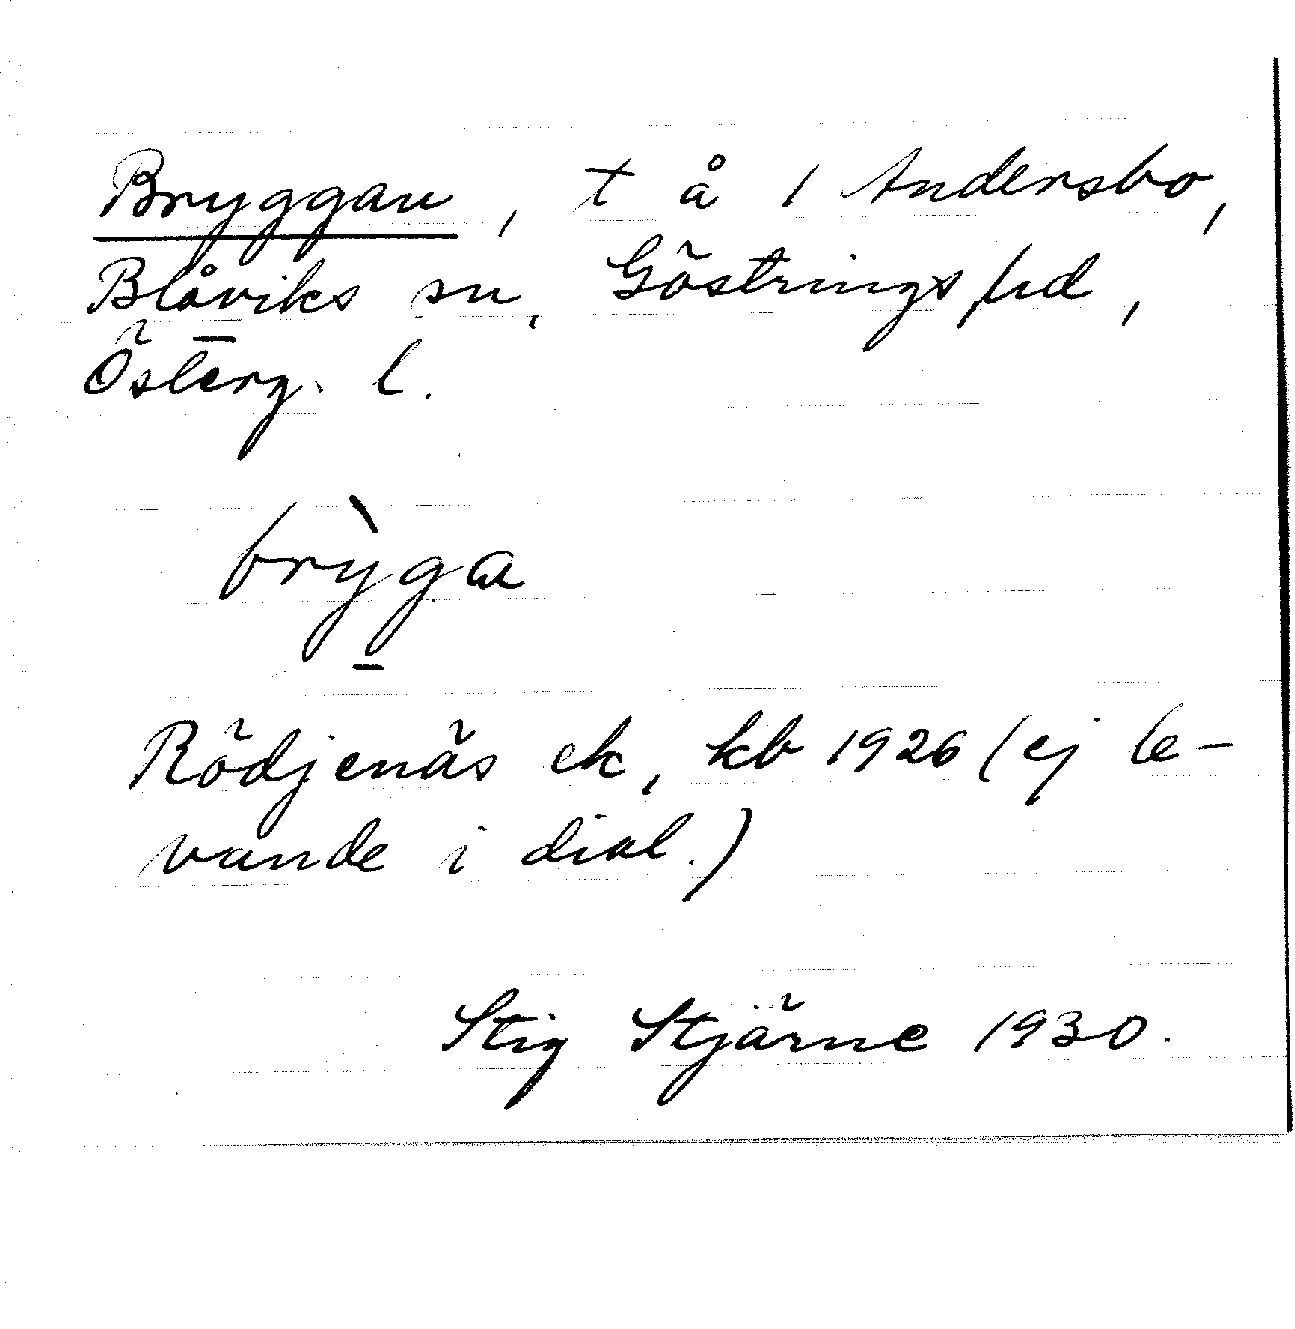 Bryggan, t å 1 Andersbo,
Blåviks sn, Göstrings hd,
Österg. l.
brỳga
Rödjenäs ek, kb 1926 (ej le-
vande i dial.)
Stig Stjärne 1930.